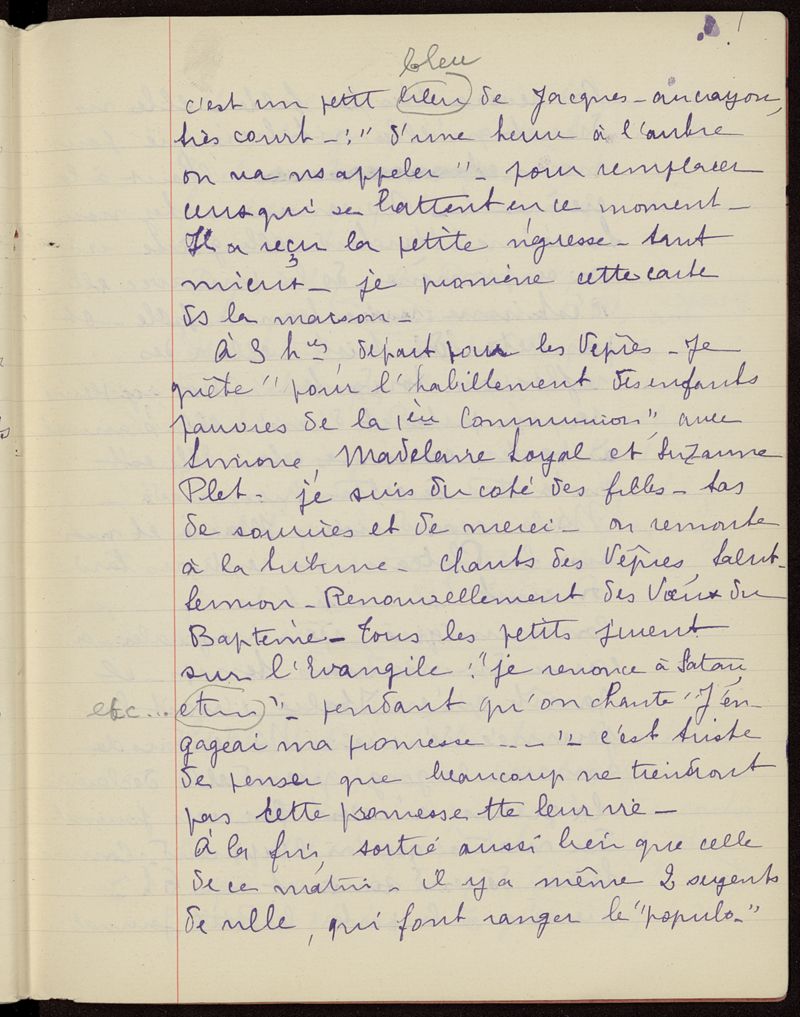 bleu
c'est un petit bleu de Jacques - au crayon,
très court - : " d'une heure à l'autre
on va ns appeler " - pour remplacer
ceux qui se battent en ce moment -
Il a reçu la petite négresse - tant
mieux - je promène cette carte
ds la maison -
À 3 hres départ pour les Vêpres - Je
quête " pour l'habillement des enfants
pauvres de la 1ère Communion ", avec
Simone, Madeleine Loyal et Suzanne
Plet - je suis du coté des filles - tas
de sourires et de merci - on remonte
à la tribune - Chants des Vêpres Salut -
Sermon - Renouvellement des Vœux du
Baptême - Tous les petits jurent
sur l'Evangile : " je renonce à Satan,
etc... etc " - pendant qu'on chante " J'en-
gageai ma promesse - - - " - c'est triste
de penser que beaucoup ne tiendront
pas cette promesse tte leur vie -
À la fin, sortie aussi bien que celle
de ce matin - il y a même 2 sergents
de ville, qui font ranger le " populo - "